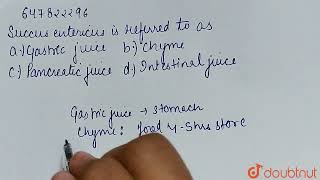 647822296
Succus entericus is referred to as
a.) Gastric juice b.) Chyme
c.) Pancreatic juice d.) Intestinal juice
Gastric juice → stomach
Chyme: food 4-5hrs store
doubtnut